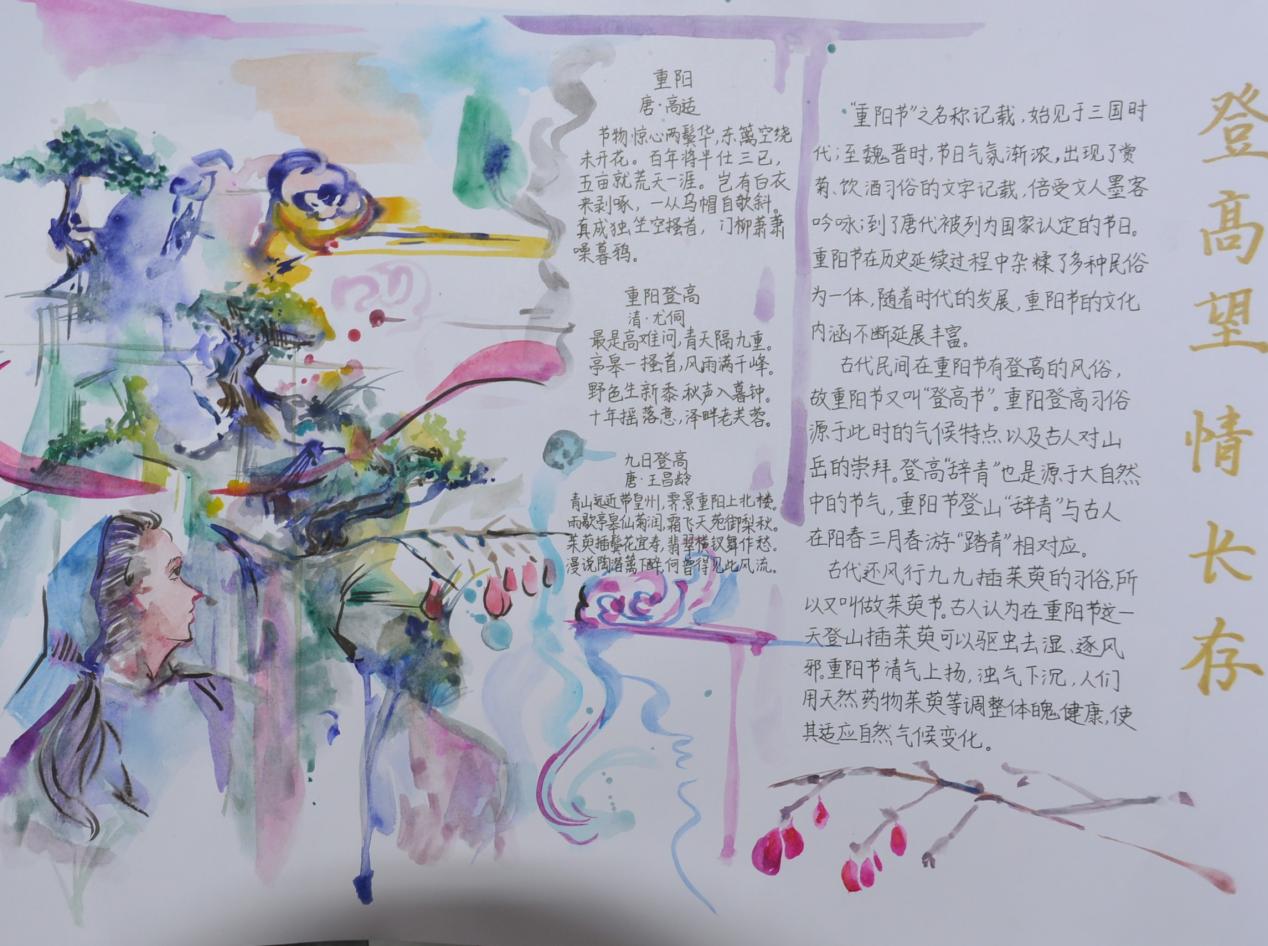 重阳
唐·高适
节物惊心两鬓华，东篱空绕
未开花。百年将半仕三已，
五亩就荒天一涯。岂有白衣
来剥啄，一从乌帽自欹斜。
真成独坐空搔首，门柳萧萧
噪暮鸦。
重阳登高
清·尤侗
最是高难问，青天隔九重。
亭皋一搔首，风雨满千峰。
野色生新黍，秋声入暮钟。
十年摇落意，泽畔老芙蓉。
九日登高
唐·王昌龄
青山远近带皇州，霁景重阳上北楼。
雨歇亭皋仙菊润，霜飞天苑御梨秋。
茱萸插鬓花宜寿，翡翠横钗舞作愁。
漫说陶潜篱下醉，何曾得见此风流。
“重阳节”之名称记载，始见于三国时
代；至魏晋时，节日气氛渐浓，出现了赏
菊、饮酒习俗的文字记载，倍受文人墨客
吟咏；到了唐代被列为国家认定的节日。
重阳节在历史延续过程中杂糅了多种民俗
为一体，随着时代的发展，重阳节的文化
内涵不断延展丰富。
古代民间在重阳节有登高的风俗，
故重阳节又叫“登高节”。重阳登高习俗
源于此时的气候特点以及古人对山
岳的崇拜。登高“辞青”也是源于大自然
中的节气，重阳节登山“辞青”与古人
在阳春三月春游“踏青”相对应。
古代还风行九九插茱萸的习俗，所
以又叫做茱萸节。古人认为在重阳节这一
天登山插茱萸可以驱虫去湿、逐风
邪。重阳节清气上扬，浊气下沉，人们
用天然药物茱萸等调整体魄健康，使
其适应自然气候变化。
登高望情长存